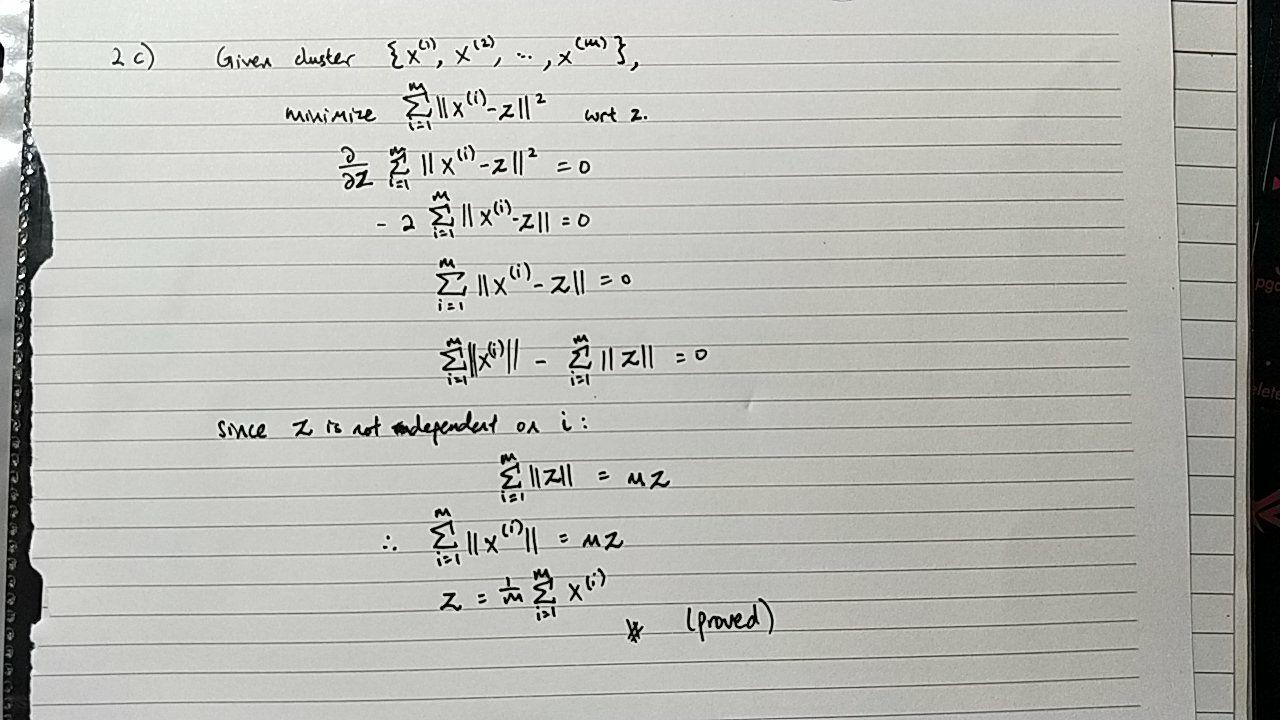 2 c) Given cluster {x^(1), x^(2), ..., x^(m)},
minimize Σ_{i=1}^{m} ||x^(i) - z||^2 wrt z.
∂/∂z Σ_{i=1}^{m} ||x^(i) - z||^2 = 0
- 2 Σ_{i=1}^{m} ||x^(i) - z|| = 0
Σ_{i=1}^{m} ||x^(i) - z|| = 0
Σ_{i=1}^{m} ||x^(i)|| - Σ_{i=1}^{m} ||z|| = 0
since z is not dependent on i:
Σ_{i=1}^{m} ||z|| = mz
∴ Σ_{i=1}^{m} ||x^(i)|| = mz
z = 1/m Σ_{i=1}^{m} x^(i)
(proved)